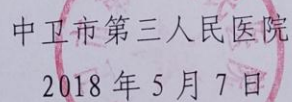 中卫市第三人民医院
2018年5月7日